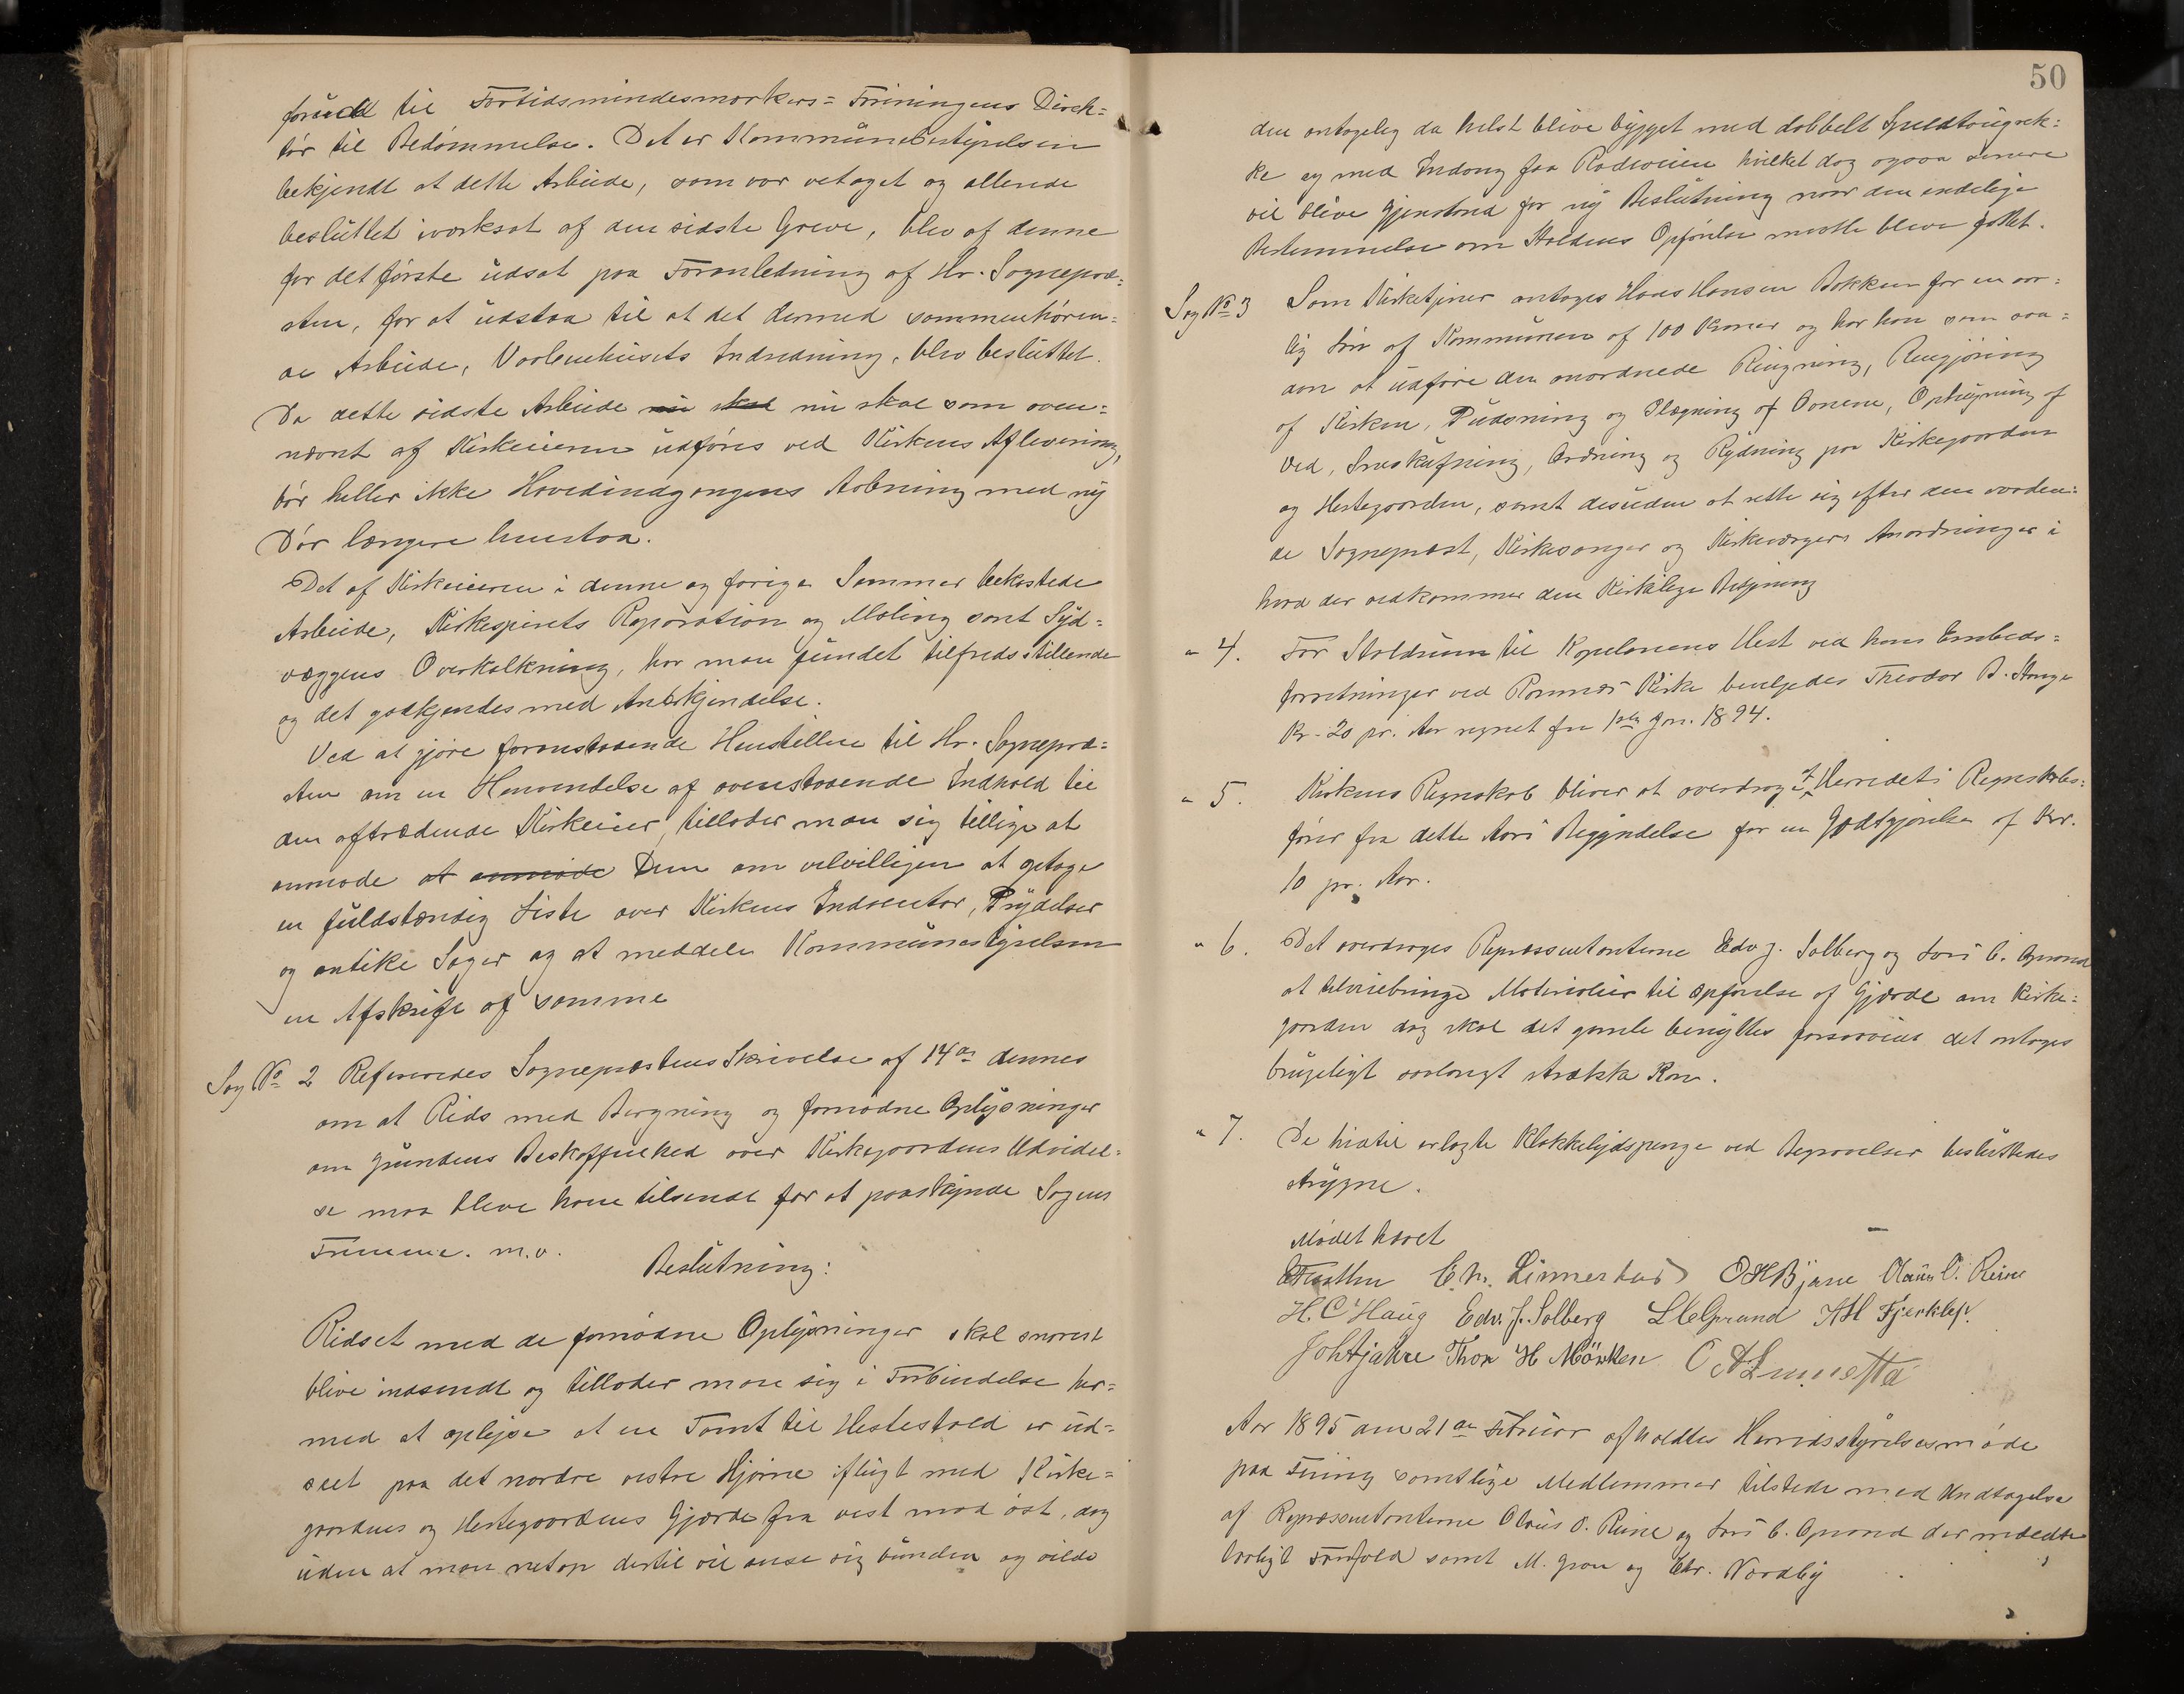 til Fortidsmindesmærkers=Foreningens Direk=
tør til Bedømmelse. Det er Kommunebestyrelsen
bekjendt at dette Arbeide, som var vetaget og allerede
besluttet iværksat af den sidste Greve, blev af denne
for det første udsat paa Foranledning af Hr. Sognepræ=
sten, for at udstaa til at det dermed sammenhøren=
de Arbeide, Vaabenhusets Indredning, blev besluttet.
Da dette sidste Arbeide nu skal nu skal som oven=
nævnt af Kirkeieren udføres ved Kirkens Aflevering,
bør heller ikke Hovedindgangens Aabning med ny
Dør længere henstaa.
Det af Kirkeieren i denne og forige Sommer bekostede
Arbeide, Kirkespirets Reparation og Maling samt Syd=
væggens Overkalkning, har man fundet tilfredsstillende
og det godkjendes med Anerkjendelse.
Ved at gjøre foranstaaende Henstillen til Hr. Sognepræ=
sten om en Henvendelse af ovenstaaende Indhold til
den aftrædende Kirkeeier, tillader man sig tillige at
anmode at anmode Dem om velvilligen at optage
en fuldstændig Liste over Kirkens Indventar, Prydelser
og antike Sager og at meddele Kommunestyrelsen
en Afskrift af samme
Sag No 2 Refereredes Sogneprestens Skrivelse af 14de dennes
om at Rids med Beregning og fornødne Oplysninger
om Grundens Beskaffenhed over Kirkegaardens Udvidel=
se maa bleve ham tilsendt for at paaskynde Sagens
Fremme. m.v.
Beslutning:
Ridset med de fornødne Oplysninger skal snarest
blive indsendt og tillader man sig i Forbindelse her=
med at oplyse at en Tomt til Hestestald er ud=
seet paa det nordre vestre Hjørne iflugt med Kirke=
gaardens og Hestegaardens Gjærde fra vest mod øst, dog
uden at man netop dertil vil anse sig bunden og vilde
50
den antagelig da helst blive bygget med dobbelt Spildtougræk=
ke og med Indgang fra Rodeveien hvilket dog ogsaa senere
vil blive Gjenstand for ny Beslutning naar den endelige
Bestemmelse om Staldens Opførelse maatte bleve fattet.
Sag No 3 Som Kirketjener antages Hans Hansen Bakken for en aar=
lig Løn af Kommunen af 100 Kroner og har han som saa=
dan at udføre den anordnede Ringning, Rengjøring
af Kirken, Pudsning og Plægning af Ovnene, Ophugning af
Ved, Sneskufning, Ordning og Rydning paa Kirkegaarden
og Hestegaarden, samt desuden at rette sig efter den vorden=
de Sogneprest, Kirkesanger og Kirkeværgers Anordninger i
hvad der vedkommer den Kirkelige Betjening
" 4. For Staldrum til Kapelanens Hest ved hans Embeds=
forretninger ved Ramnæs Kirke bevilgedes Theodor B. Stange
Kr. 20 pr. Aar regnet fra 1ste Jan. 1894.
" 5. Kirkens Regnskab bliver at overdrage af Herredets Regnskabs=
fører fra dette Aars Begyndelse for en Godtgjørelse af Kr.
10 pr. Aar.
" 6. Det overdrages Repræsentanterne Edv J. Solberg og Lars C. Gprand
at tilveiebringe Materialier til Opførelse af Gjærde om Kirke=
gaarden dog skal det gamle benyttes forsaavidt det antages
brugeligt saalangt strække kan.
" 7. De hidtil erlagte Klokkelydspenge ved Begravelser besluttedes
strøgne.
Mødet hævet
Chr. Linnestad O H Bjane Olaus O. Reine
H. C. Haug Edv. J. Solberg
Thor H Mørken
Aar 1895 den 21de Februar afholdtes Herredsstyrelsesmøde
paa Fining samtlige Medlemmer tilstede med Undtagelse
af Repræsentanterne Olaus O. Reine og Lars C. Gprand der meldte
lovligt Forfald samt M. Gran og Chr. Nordby